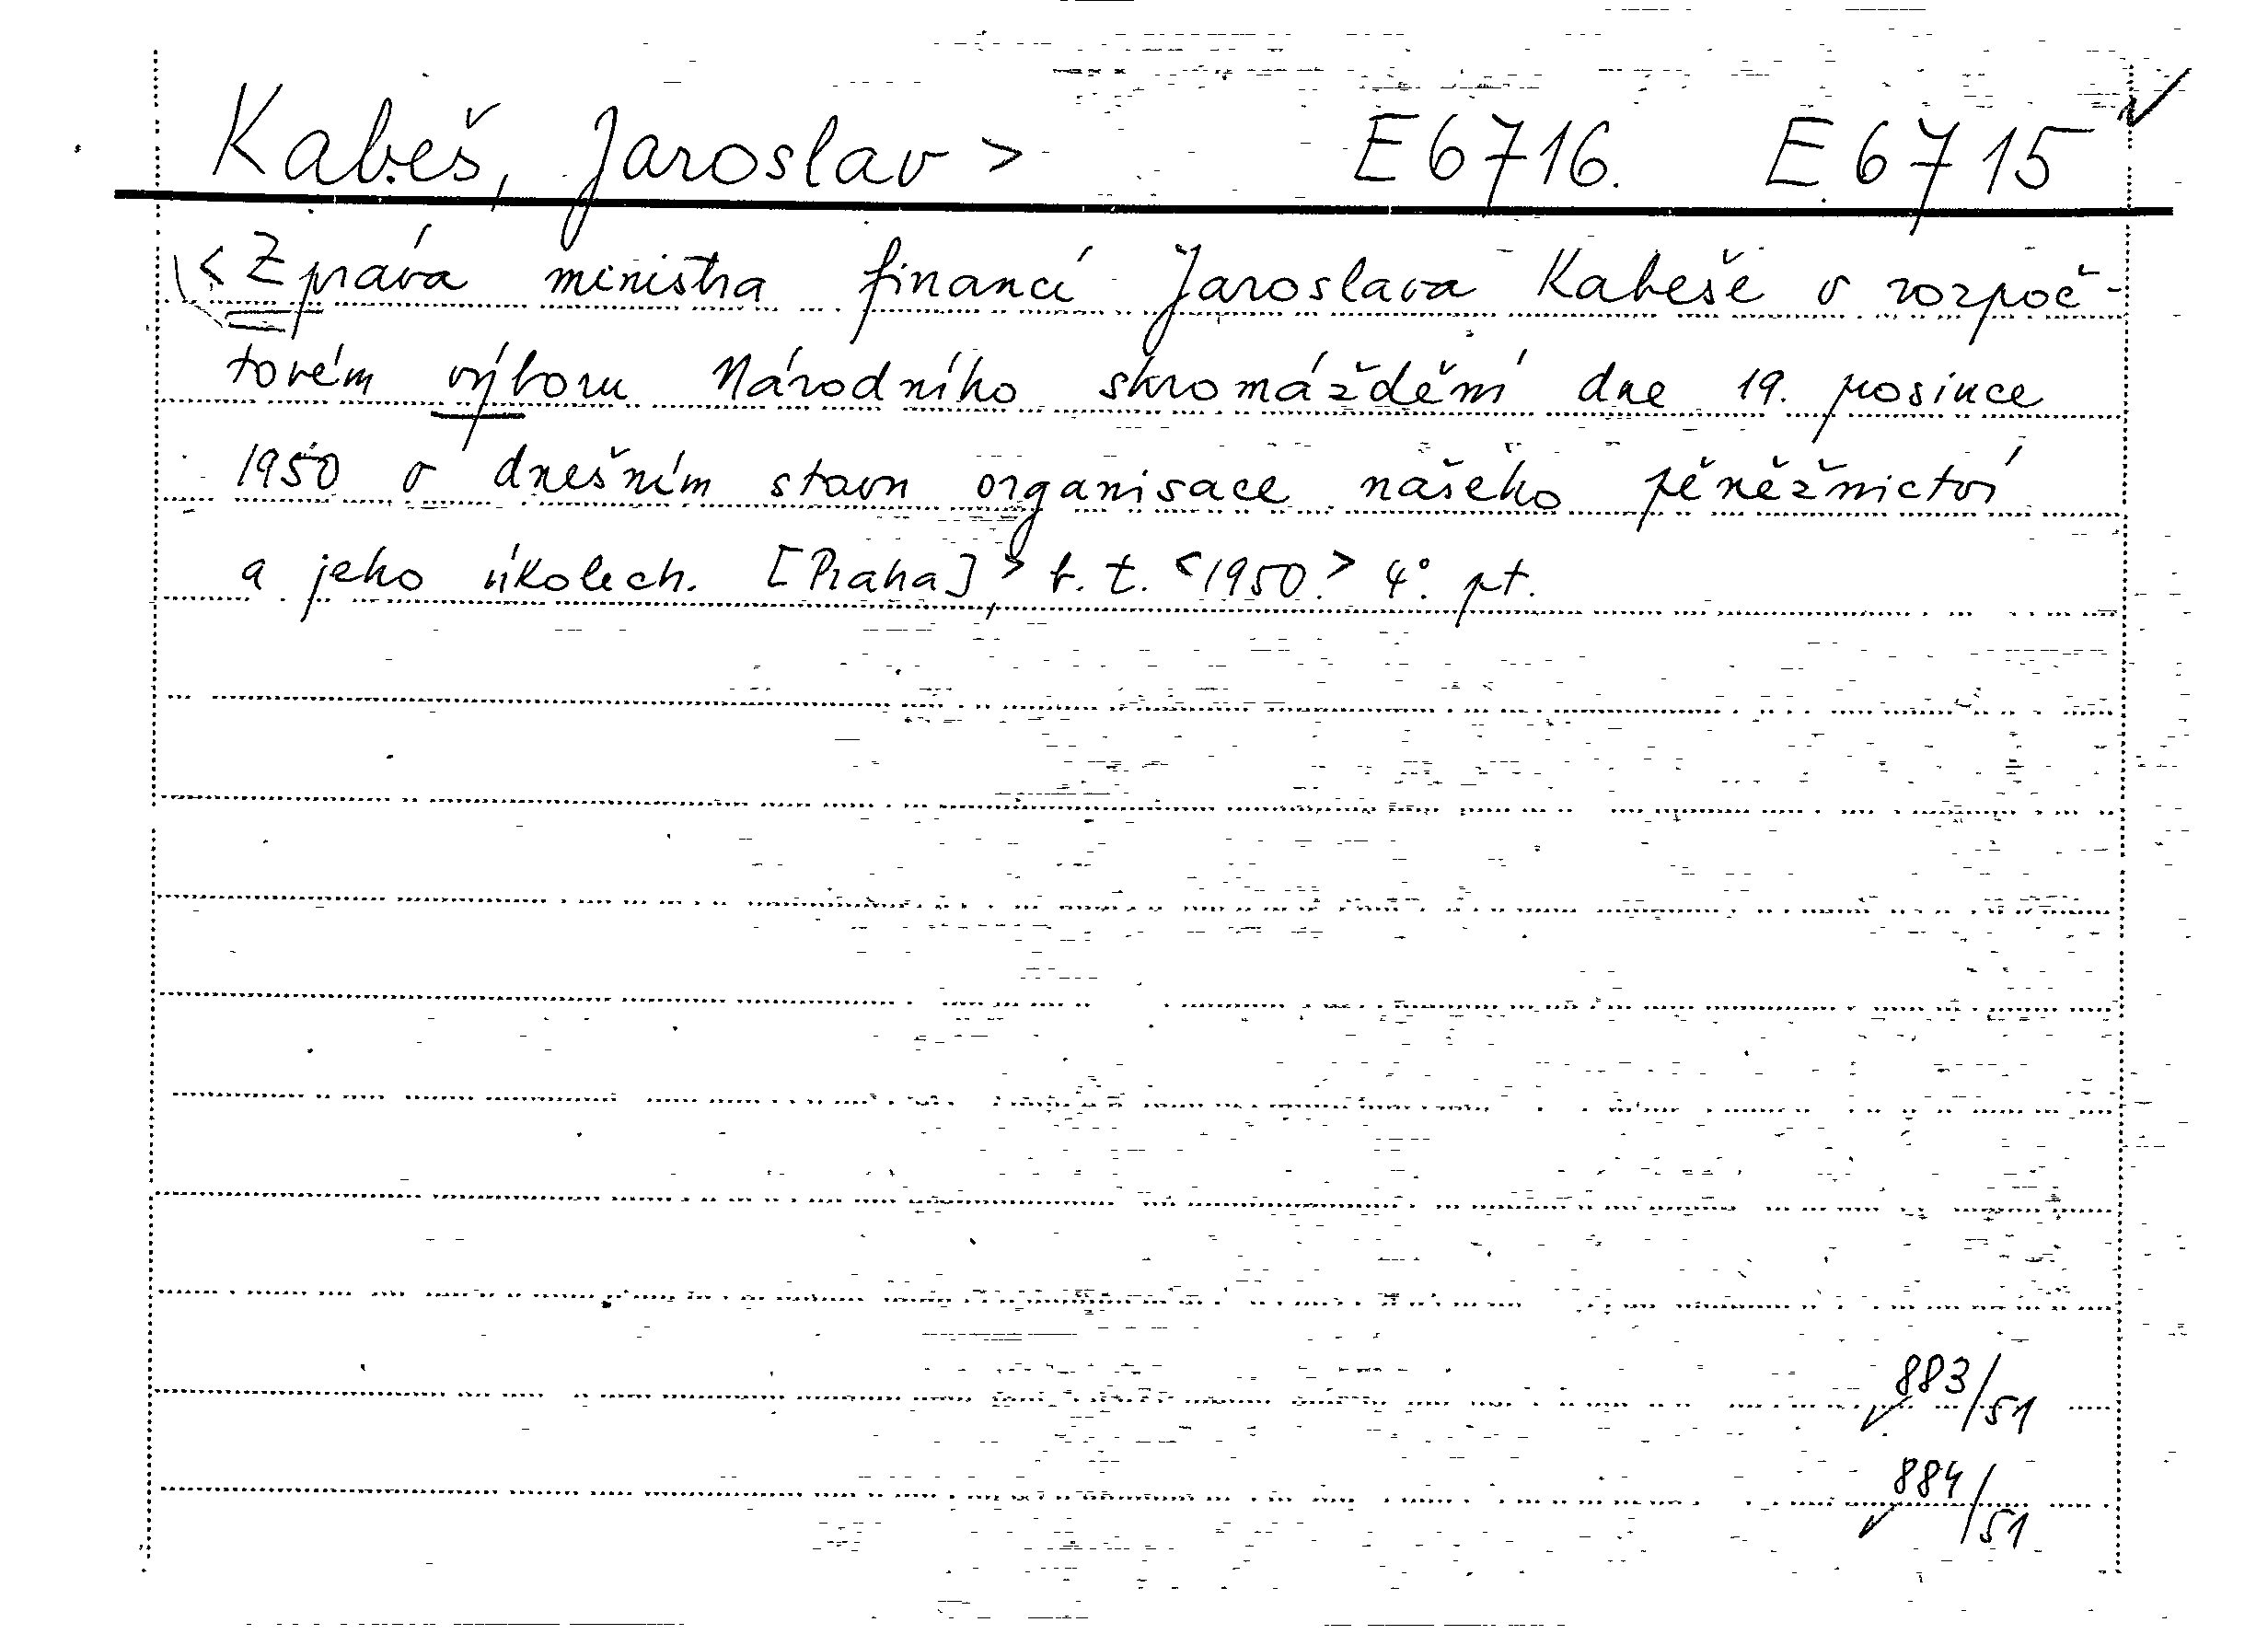 Kabeš, Jaroslav > E 6716. E 6715
< Zpráva ministra financí Jaroslava Kabeše v rozpoč-
tovém výboru Národního shromáždění dne 19. prosince
1950 o dnešním stavu organisace našeho peněžnictví
a jeho úkolech. [Praha], > b. t. < 1950. > 4°. pt.
883/51
884/51